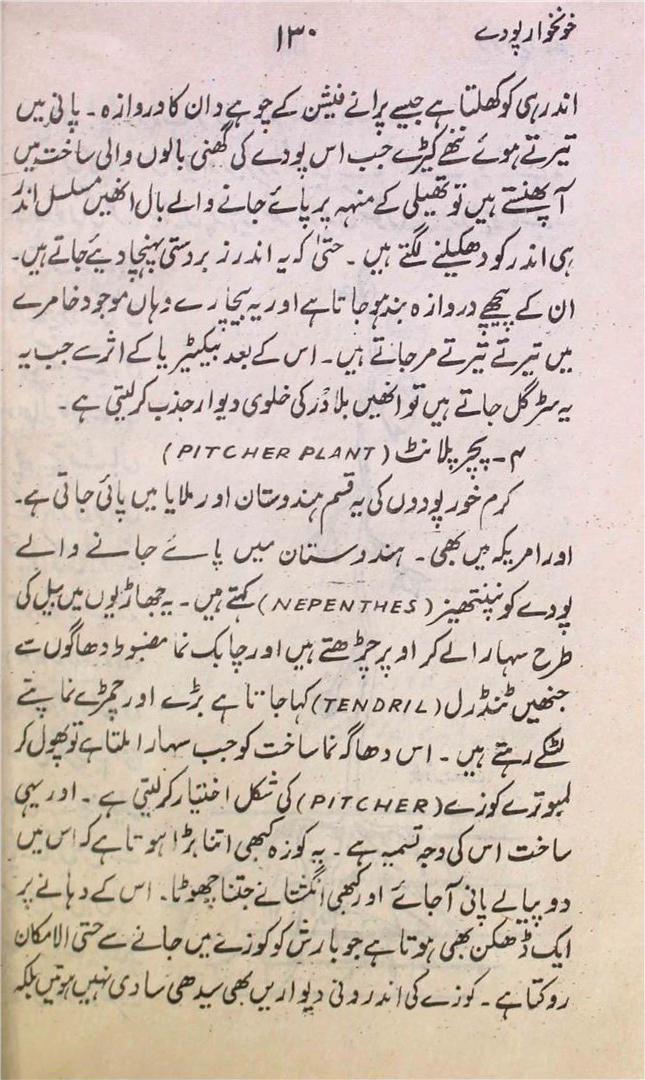 خونخوار پودے
۱۳۰
اندر ہی کو کھلتا ہے جیسے پرانے فیشن کے چوہے دان کا دروازہ۔ پانی میں
تیرتے ہوئے ننھے کیڑے جب اس پودے کی گھنی بالوں والی ساخت میں
آ پھنستے ہیں تو تھیلی کے منہہ پر پائے جانے والے بال انھیں مسلسل اندر
ہی اندر کو دھکیلنے لگتے ہیں۔ حتیٰ کہ یہ اندر زبردستی پہنچا دیئے جاتے ہیں۔
ان کے پیچھے دروازہ بند ہو جاتا ہے اور یہ بیچارے وہاں موجود خامرے
میں تیرتے تیرتے مر جاتے ہیں۔ اس کے بعد بیکٹیریا کے اثر سے جب یہ
یہ سڑ گل جاتے ہیں تو انھیں بلاڈر کی خلوی دیوار جذب کر لیتی ہے۔
۴۔ پچر پلانٹ (PITCHER PLANT)
کرم خور پودوں کی یہ قسم ہندوستان اور ملایا میں پائی جاتی ہے۔
اور امریکہ میں بھی۔ ہندوستان میں پائے جانے والے
پودے کو نیپنتھیز (NEPENTHES) کہتے ہیں۔ یہ جھاڑیوں میں بیل کی
طرح سہارا لے کر اوپر چڑھتے ہیں اور چابک نما مضبوط دھاگوں سے
جنھیں ٹنڈرل (TENDRIL) کہا جاتا ہے بڑے اور چمڑے نما پتے
لٹکے رہتے ہیں۔ اس دھاگہ نما ساخت کو جب سہارا ملتا ہے تو پھول کر
لمبوترے کوزے (PITCHER) کی شکل اختیار کر لیتی ہے۔ اور یہی
ساخت اس کی وجہ تسمیہ ہے۔ یہ کوزہ کبھی اتنا بڑا ہوتا ہے کہ اس میں
دو پیالے پانی آ جائے اور کبھی انگشتانے جتنا چھوٹا۔ اس کے دہانے پر
ایک ڈھکن بھی ہوتا ہے جو بارش کو کوزے میں جانے سے حتی الامکان
روکتا ہے۔ کوزے کی اندرونی دیواریں بھی سیدھی سادی نہیں ہوتیں بلکہ